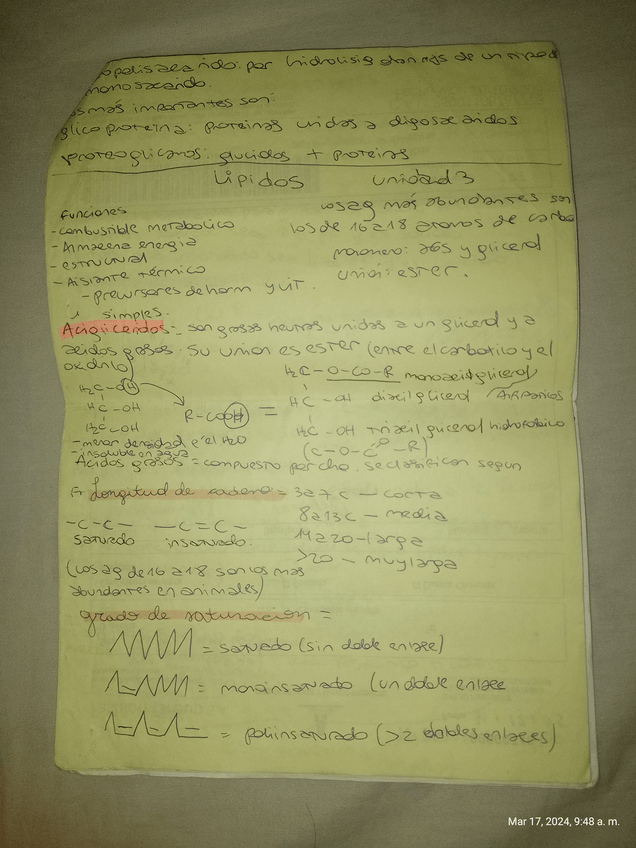 opolisacarido: por hidrolisis dan más de un tipo d
monosacarido.
os más importantes son:
glicoproteina: proteinas unidas a oligosacaridos
proteoglicanos: glucidos + proteinas
Lipidos unidad 3
Funciones
- combustible metabolico
- Almacena energia
- estructural
- Aislante térmico
- precursores de horm y vit.
los ag más abundantes son
los de 16 a 18 atomos de carbo
monomero: ags y glicerol
union: ester.
simples.
Acilgliceridos = son grasas neutras unidas a un glicerol y a
acidos grasos. Su union es ester (entre el carboxilo y el
oxidrilo)
H2C-OH
HC-OH
H2C-OH
R-COOH =
H2C-O-CO-R monoacilglicerol
HC-OH diacilglicerol
H2C-OH triacilglicerol hidrofobico
(C-O-C=O-R)
- menor densidad q' el H2O
- insoluble en agua
Acidos grasos = compuesto por cho. se clasifican segun
Longitud de cadena = 3 a 7 c - corta
8 a 13 c - media
14 a 20 - larga
>20 - muy larga
-C-C- -C=C-
saturado insaturado.
(los ag de 16 a 18 son los mas
abundantes en animales)
grado de saturacion =
= saturado (sin doble enlace)
= monoinsaturado (un doble enlace
= poliinsaturado (>2 dobles enlaces)
Mar 17, 2024, 9:48 a. m.